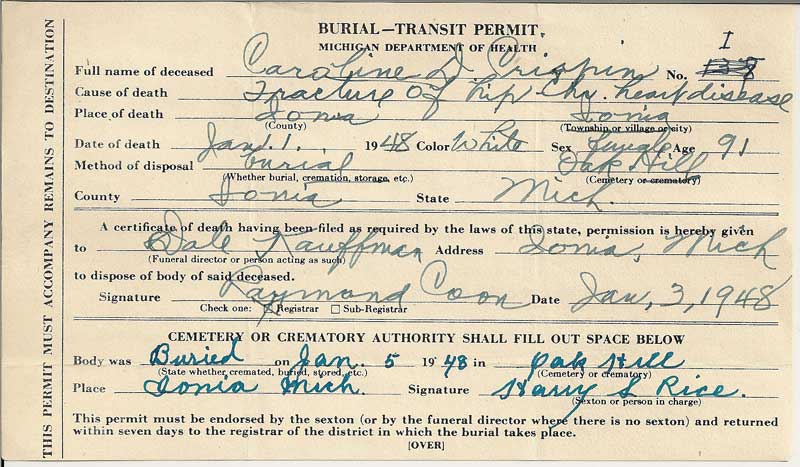 THIS PERMIT MUST ACCOMPANY REMAINS TO DESTINATION
BURIAL—TRANSIT PERMIT
MICHIGAN DEPARTMENT OF HEALTH
I
Full name of deceased Caroline D. Crispin No. 138
Cause of death Fracture of hip Chr. heart disease
Place of death Ionia Ionia
(County) (Township or village or city)
Date of death Jan. 1. 1948 Color White Sex Female Age 91
Method of disposal burial Oak Hill
(Whether burial, cremation, storage, etc.) (Cemetery or crematory)
County Ionia State Mich.
A certificate of death having been filed as required by the laws of this state, permission is hereby given
to Dale Kauffman Address Ionia, Mich
(Funeral director or person acting as such)
to dispose of body of said deceased.
Signature Raymond Coon Date Jan, 3, 1948
Check one: Registrar Sub-Registrar
CEMETERY OR CREMATORY AUTHORITY SHALL FILL OUT SPACE BELOW
Body was Buried on Jan. 5 1948 in Oak Hill
(State whether cremated, buried, stored, etc.) (Cemetery or crematory)
Place Ionia Mich. Signature Harry S Rice.
(Sexton or person in charge)
This permit must be endorsed by the sexton (or by the funeral director where there is no sexton) and returned
within seven days to the registrar of the district in which the burial takes place.
[OVER]